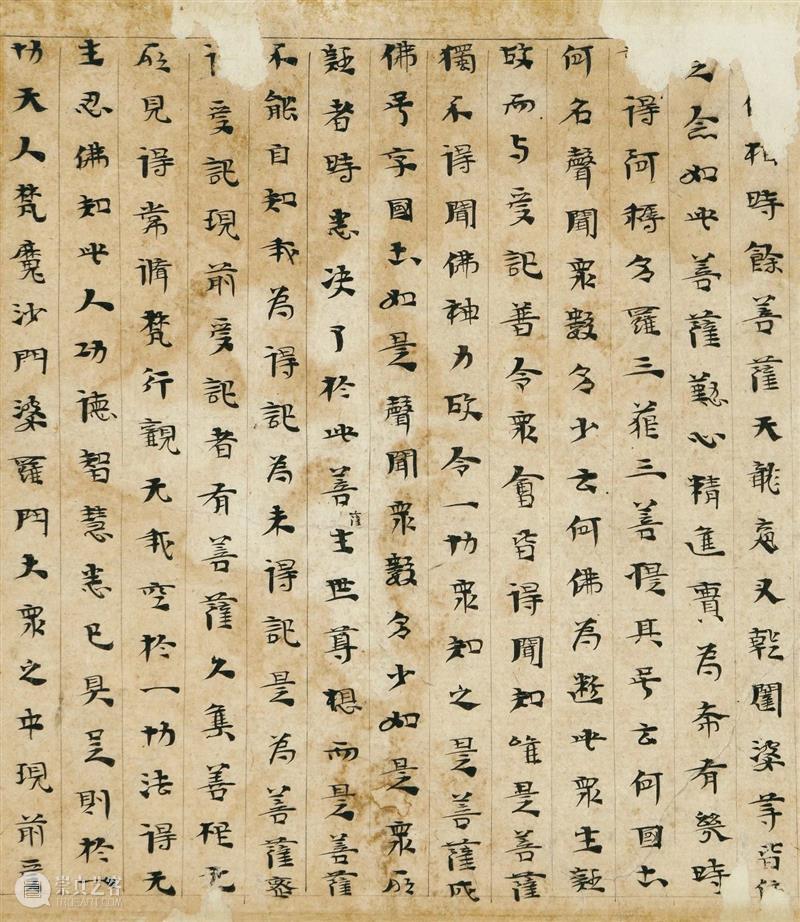 時餘菩薩天龍夜叉乾闥婆等皆作
之念如此菩薩懃心精進實為希有幾時
得阿耨多羅三藐三菩提其号云何國土
何名聲聞眾數多少云何佛為斷此眾生疑
故而与受記普令眾會皆得聞知唯是菩薩
獨不得聞佛神力故令一切眾知之是菩薩成
佛号字國土如是聲聞眾數多少如是眾所
疑者時悉決了於此菩薩生世尊想而是菩薩
不能自知我為得記為未得記是為菩薩密
受記現前受記者有菩薩久集善根无
所見得常脩梵行觀无我空於一切法得无
生忍佛知此人功德智慧悉已具足則於一
切天人梵魔沙門婆羅門大眾之中現前受
崇真艺客